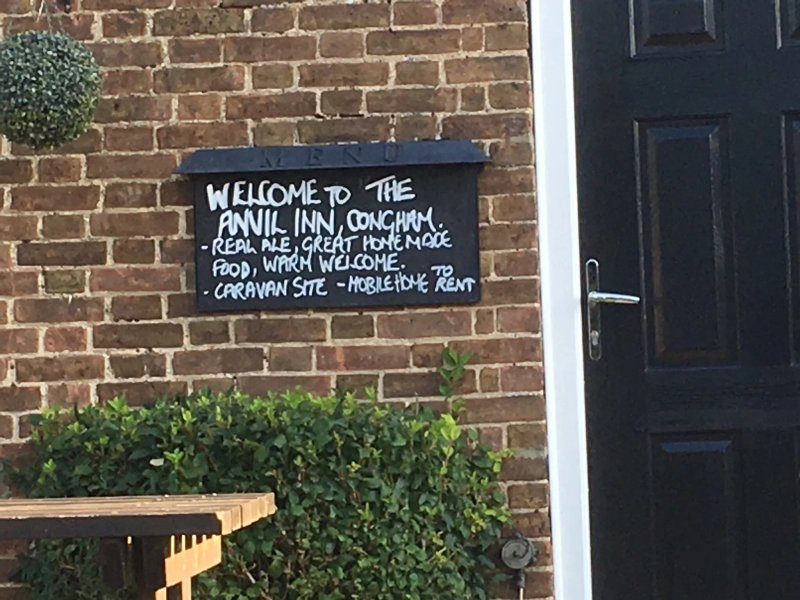 MENU
WELCOME TO THE
ANVIL INN, CONGHAM.
- REAL ALE, GREAT HOMEMADE
FOOD, WARM WELCOME.
- CARAVAN SITE - MOBILE HOME TO RENT